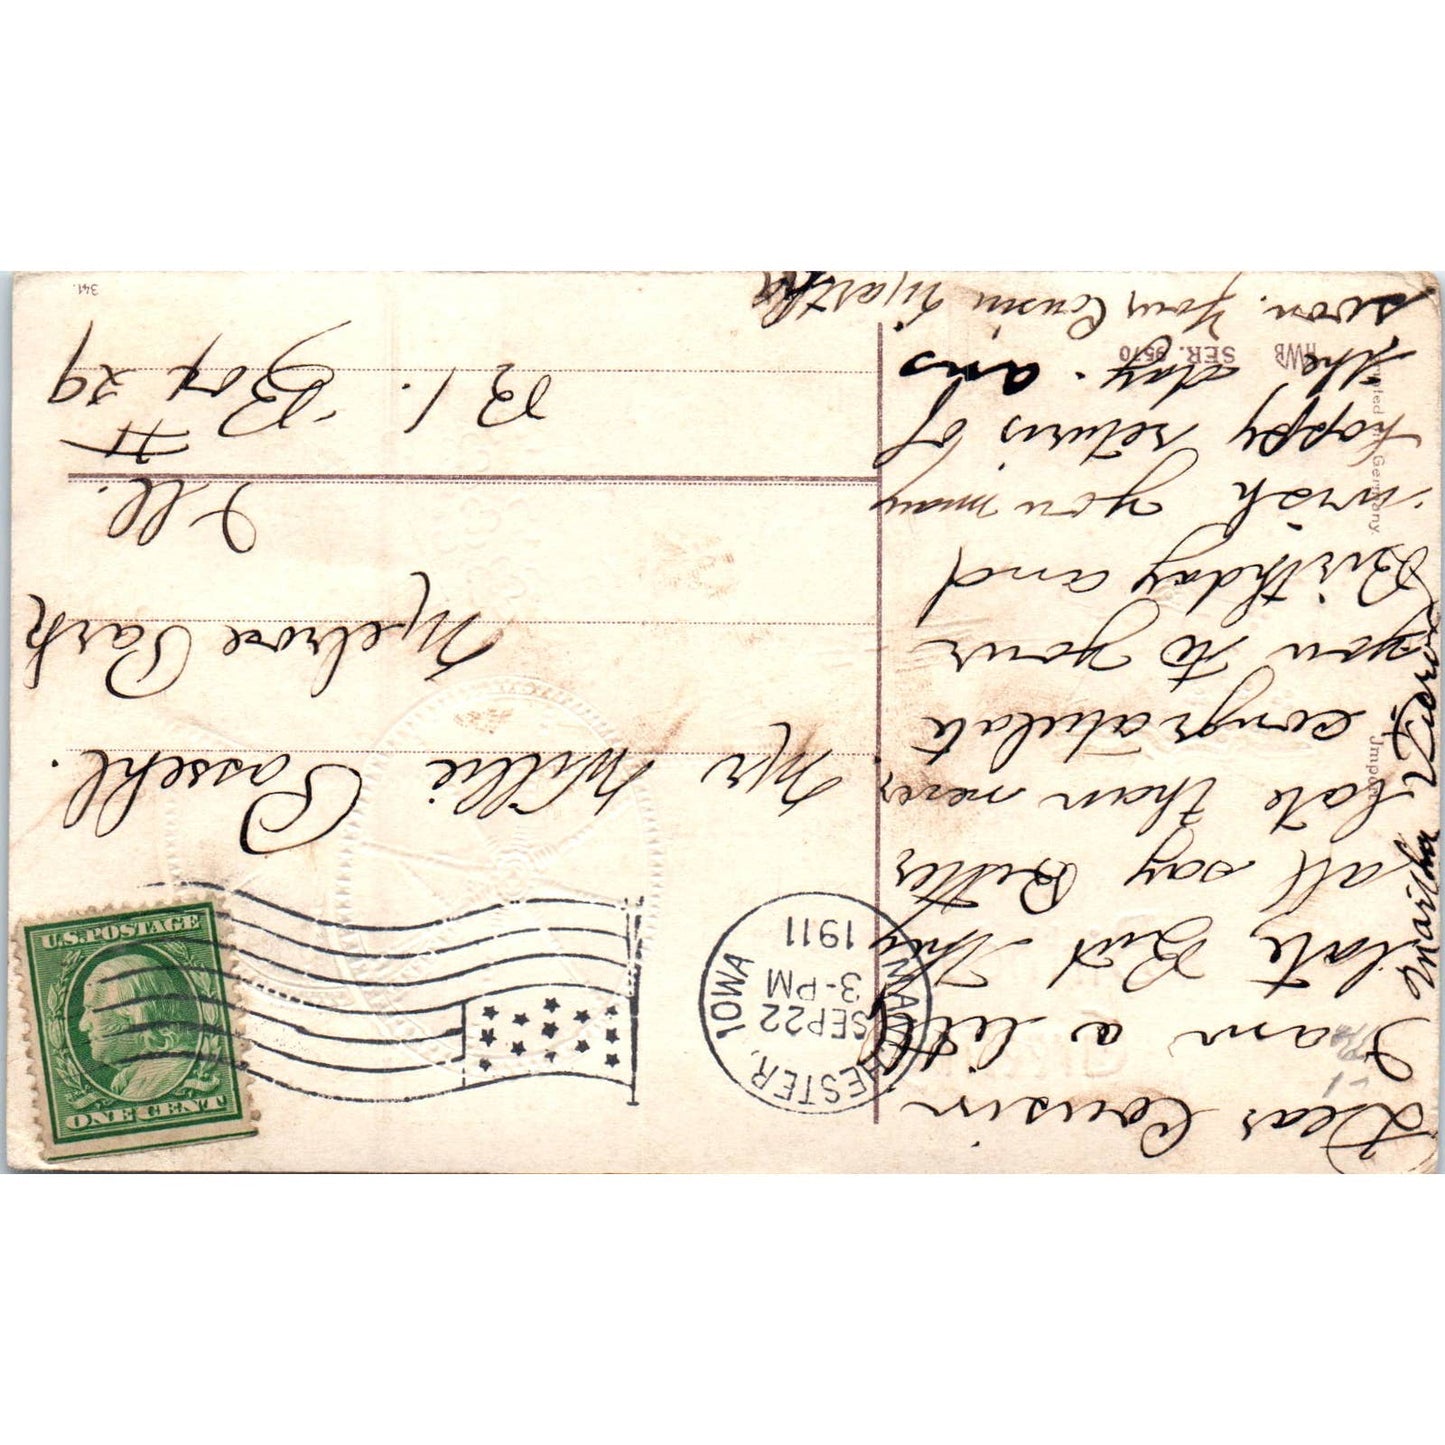 Dear Cousin
I am a little
late But they
all say Better
late than never
congratulate
you to your
Birthday and
wish you many
happy returns of
the day. ans
soon. Your Cousin Martha
Martha
Imported
Germany.
HWB SER. 9570
MANCHESTER, IOWA
SEP 22
3-PM
1911
U.S. POSTAGE
ONE CENT
Mr Willie Passehl.
Melrose Park
Ill.
R 1. Box # 29
341.